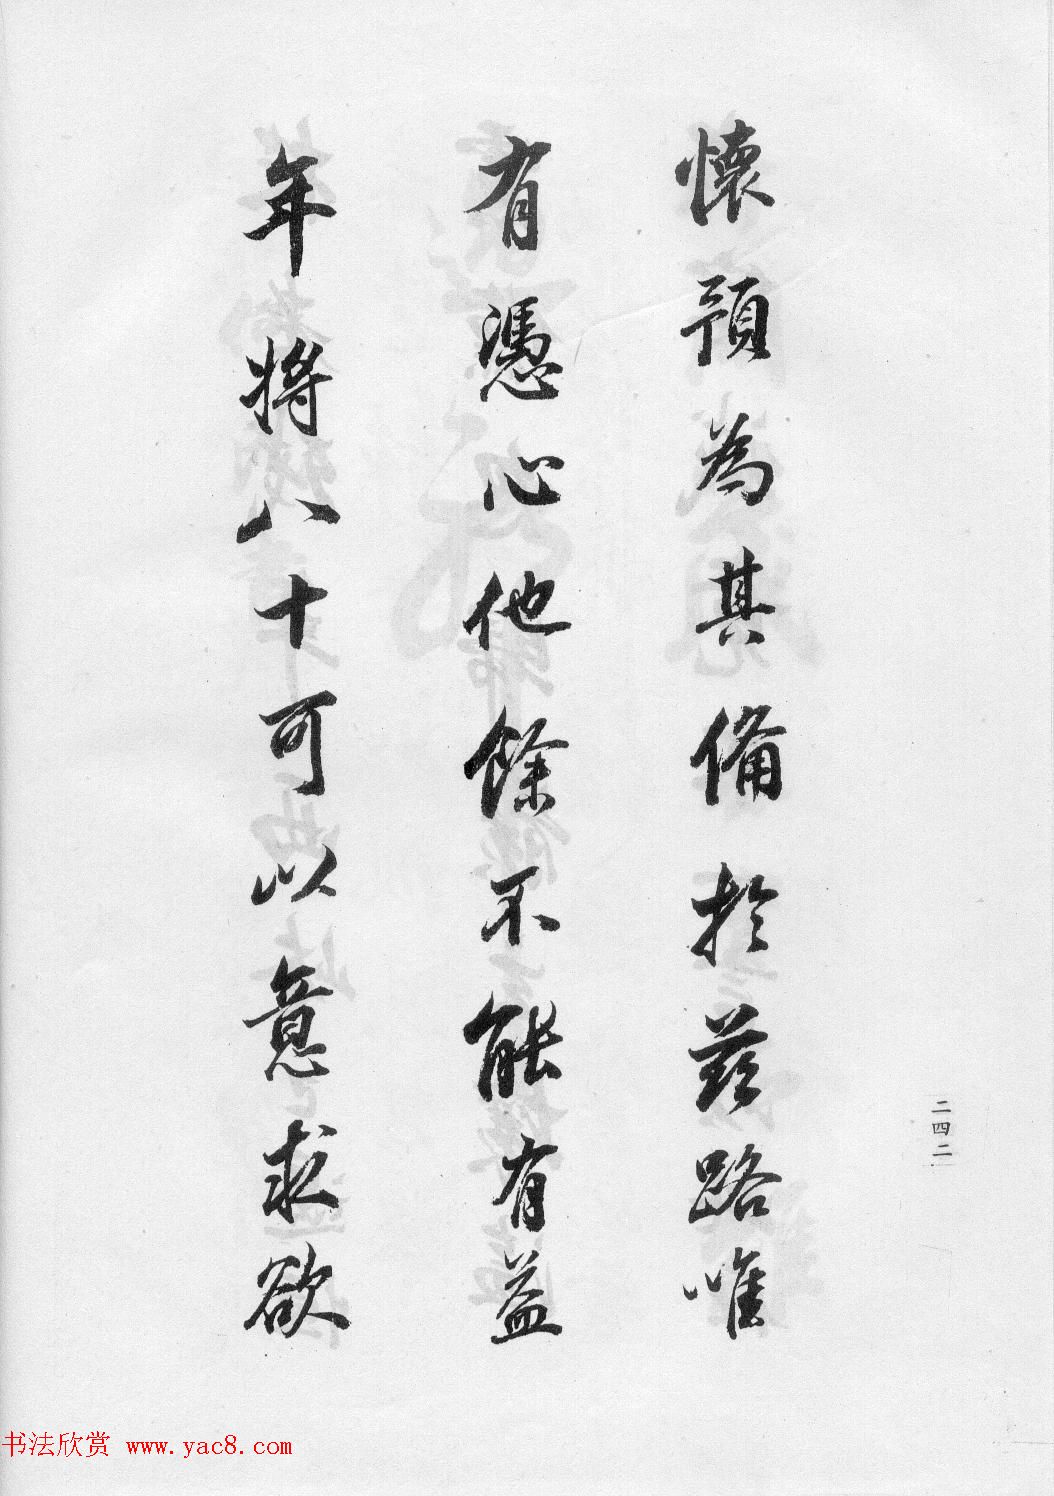 懷預為其備於茲路唯
有憑心他餘不能有益
年將八十可以意求欲
二四二
书法欣赏 www.yac8.com